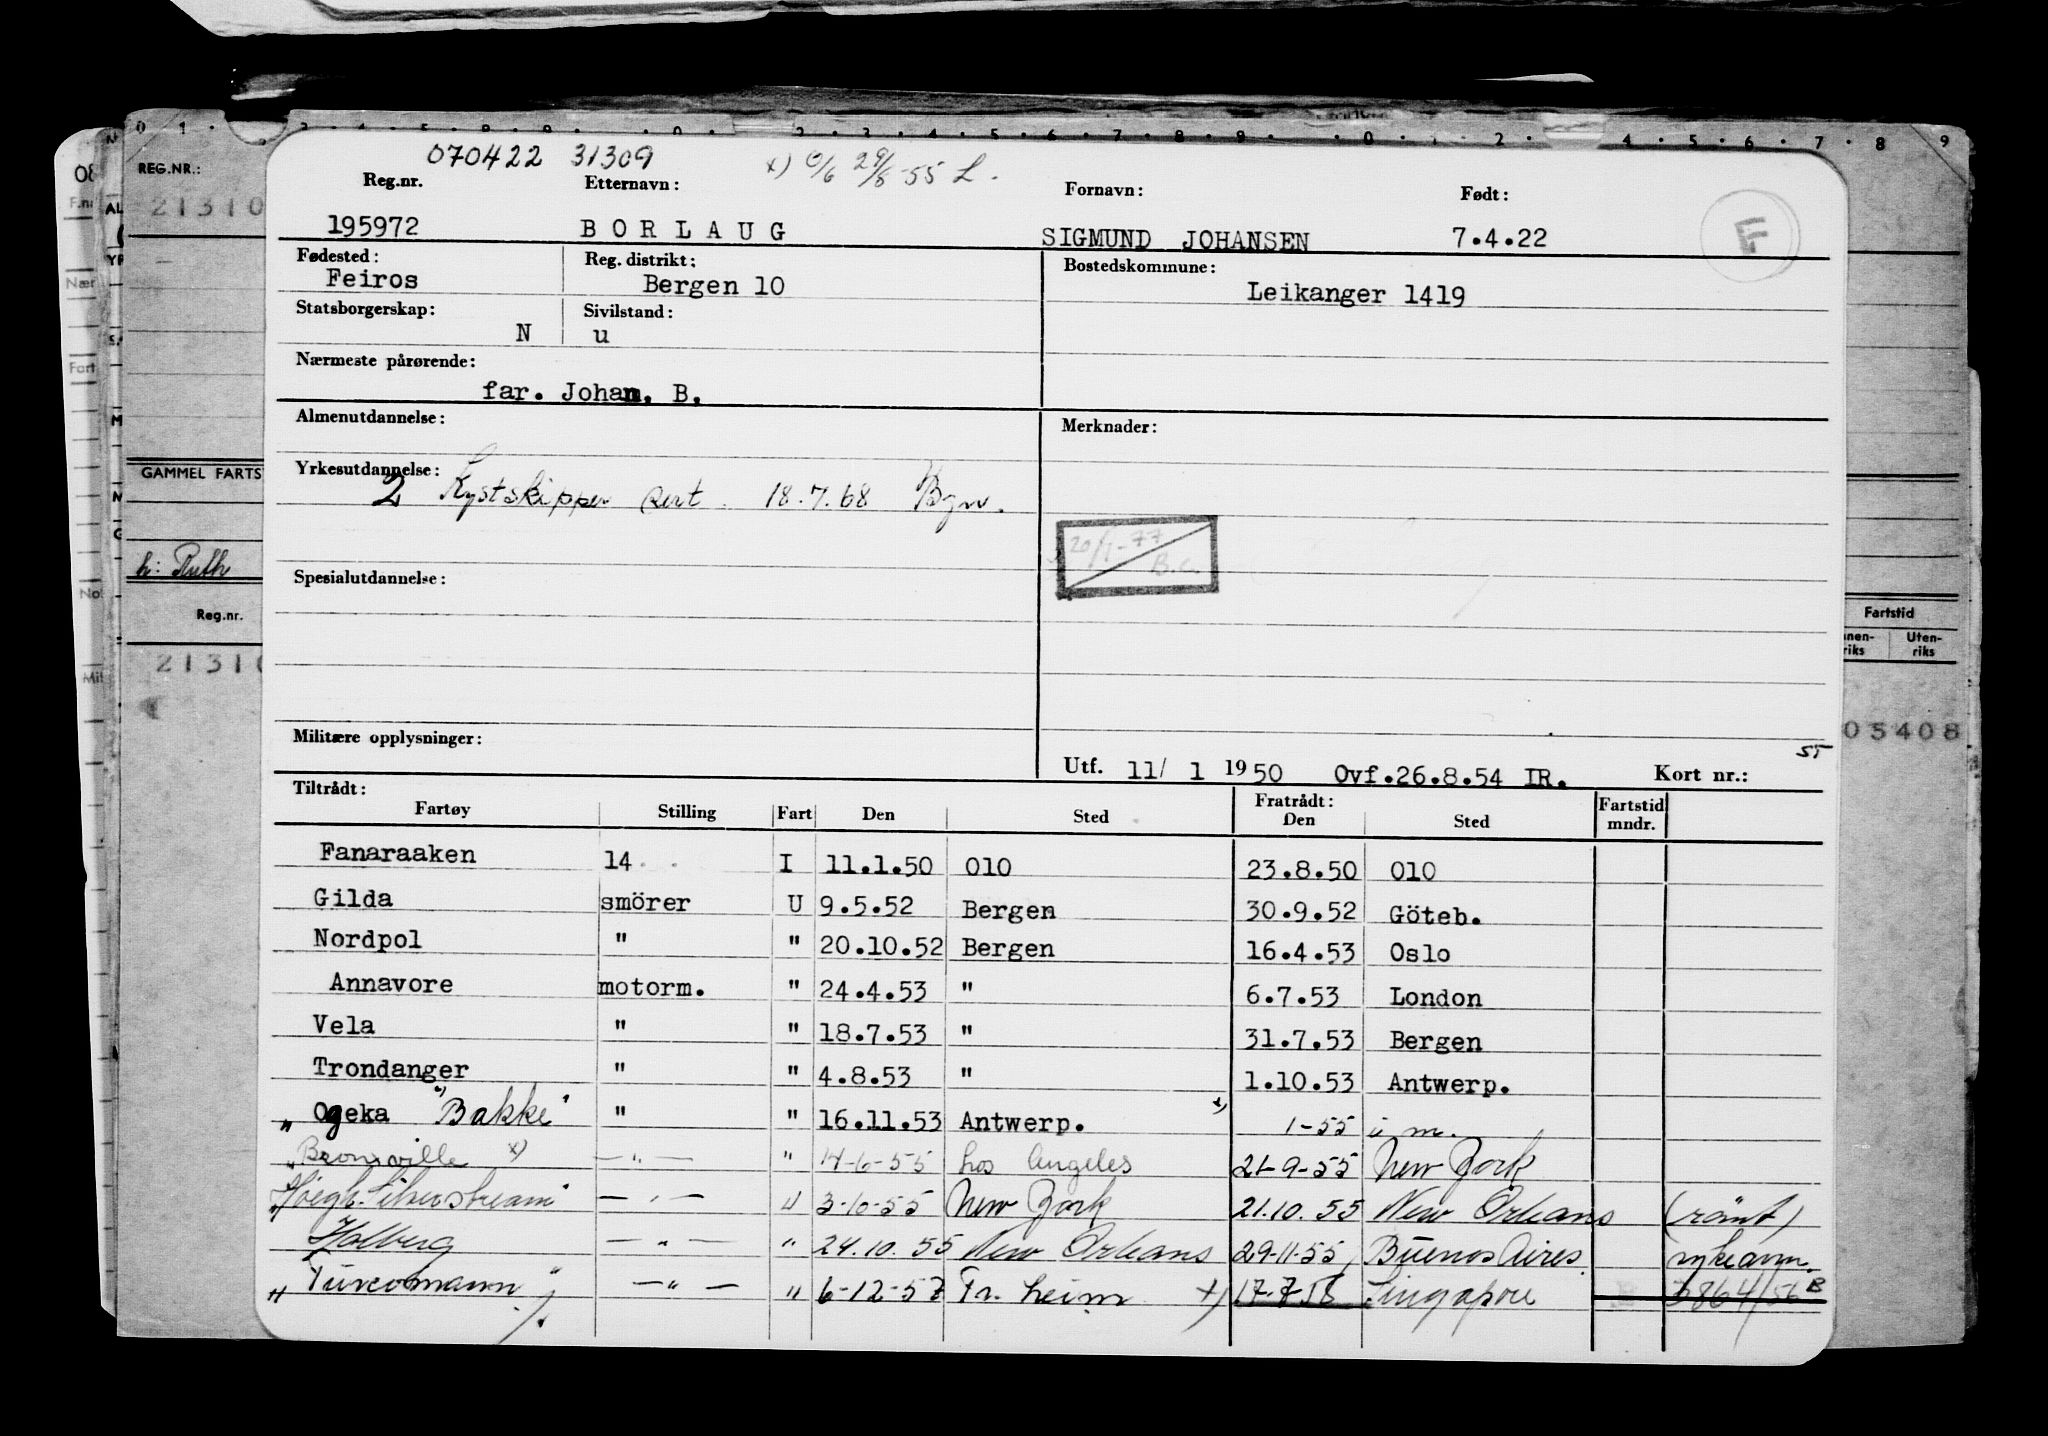 070422 31309 x) 0/6 29/8-55 L.
Reg.nr. Etternavn: Fornavn: Født:
195972 BORLAUG SIGMUND JOHANSEN 7.4.22
Fødested: Reg. distrikt: Bostedskommune:
Feiros Bergen 10 Leikanger 1419
Statsborgerskap: Sivilstand:
N u
Nærmeste pårørende:
far. Johan. B.
Almenutdannelse: Merknader:
Yrkesutdannelse:
2 Kystskipper sert. 18.7.68 Bgn.
20/1-77
B.a.
Spesialutdannelse:
Militære opplysninger:
Utf. 11/ 1 1950 Ovf.26.8.54 IR. Kort nr.: 55
Tiltrådt: Fratrådt: Fartstid
Fartøy Stilling Fart Den Sted Den Sted mndr.
Fanaraaken 14 I 11.1.50 Olo 23.8.50 Olo
Gilda smörer U 9.5.52 Bergen 30.9.52 Göteb.
Nordpol " " 20.10.52 Bergen 16.4.53 Oslo
Annavore motorm. " 24.4.53 " 6.7.53 London
Vela " " 18.7.53 " 31.7.53 Bergen
Trondanger " " 4.8.53 " 1.10.53 Antwerp.
" Ogeka "Bakke" " " 16.11.53 Antwerp. x) 1-55
"Bronxville x) — " — " 14-6-55 Los Angeles 21-9-55 New York
"Höegh Silverstream" — " — " 3-10-55 New York 21.10.55 New Orleans (römt)
Holberg — " — " 24.10.55 New Orleans 29-11-55 Buenos Aires. sykeavm.
" Turcoman " — " — " 6-12-57 Tr.heim x) 17-7-58 Singapore 3864/56 B
REG.NR.:
21310
GAMMEL FARTS
h: Ruth
Reg.nr.
21310
Fartstid
Uten-
riks
05408